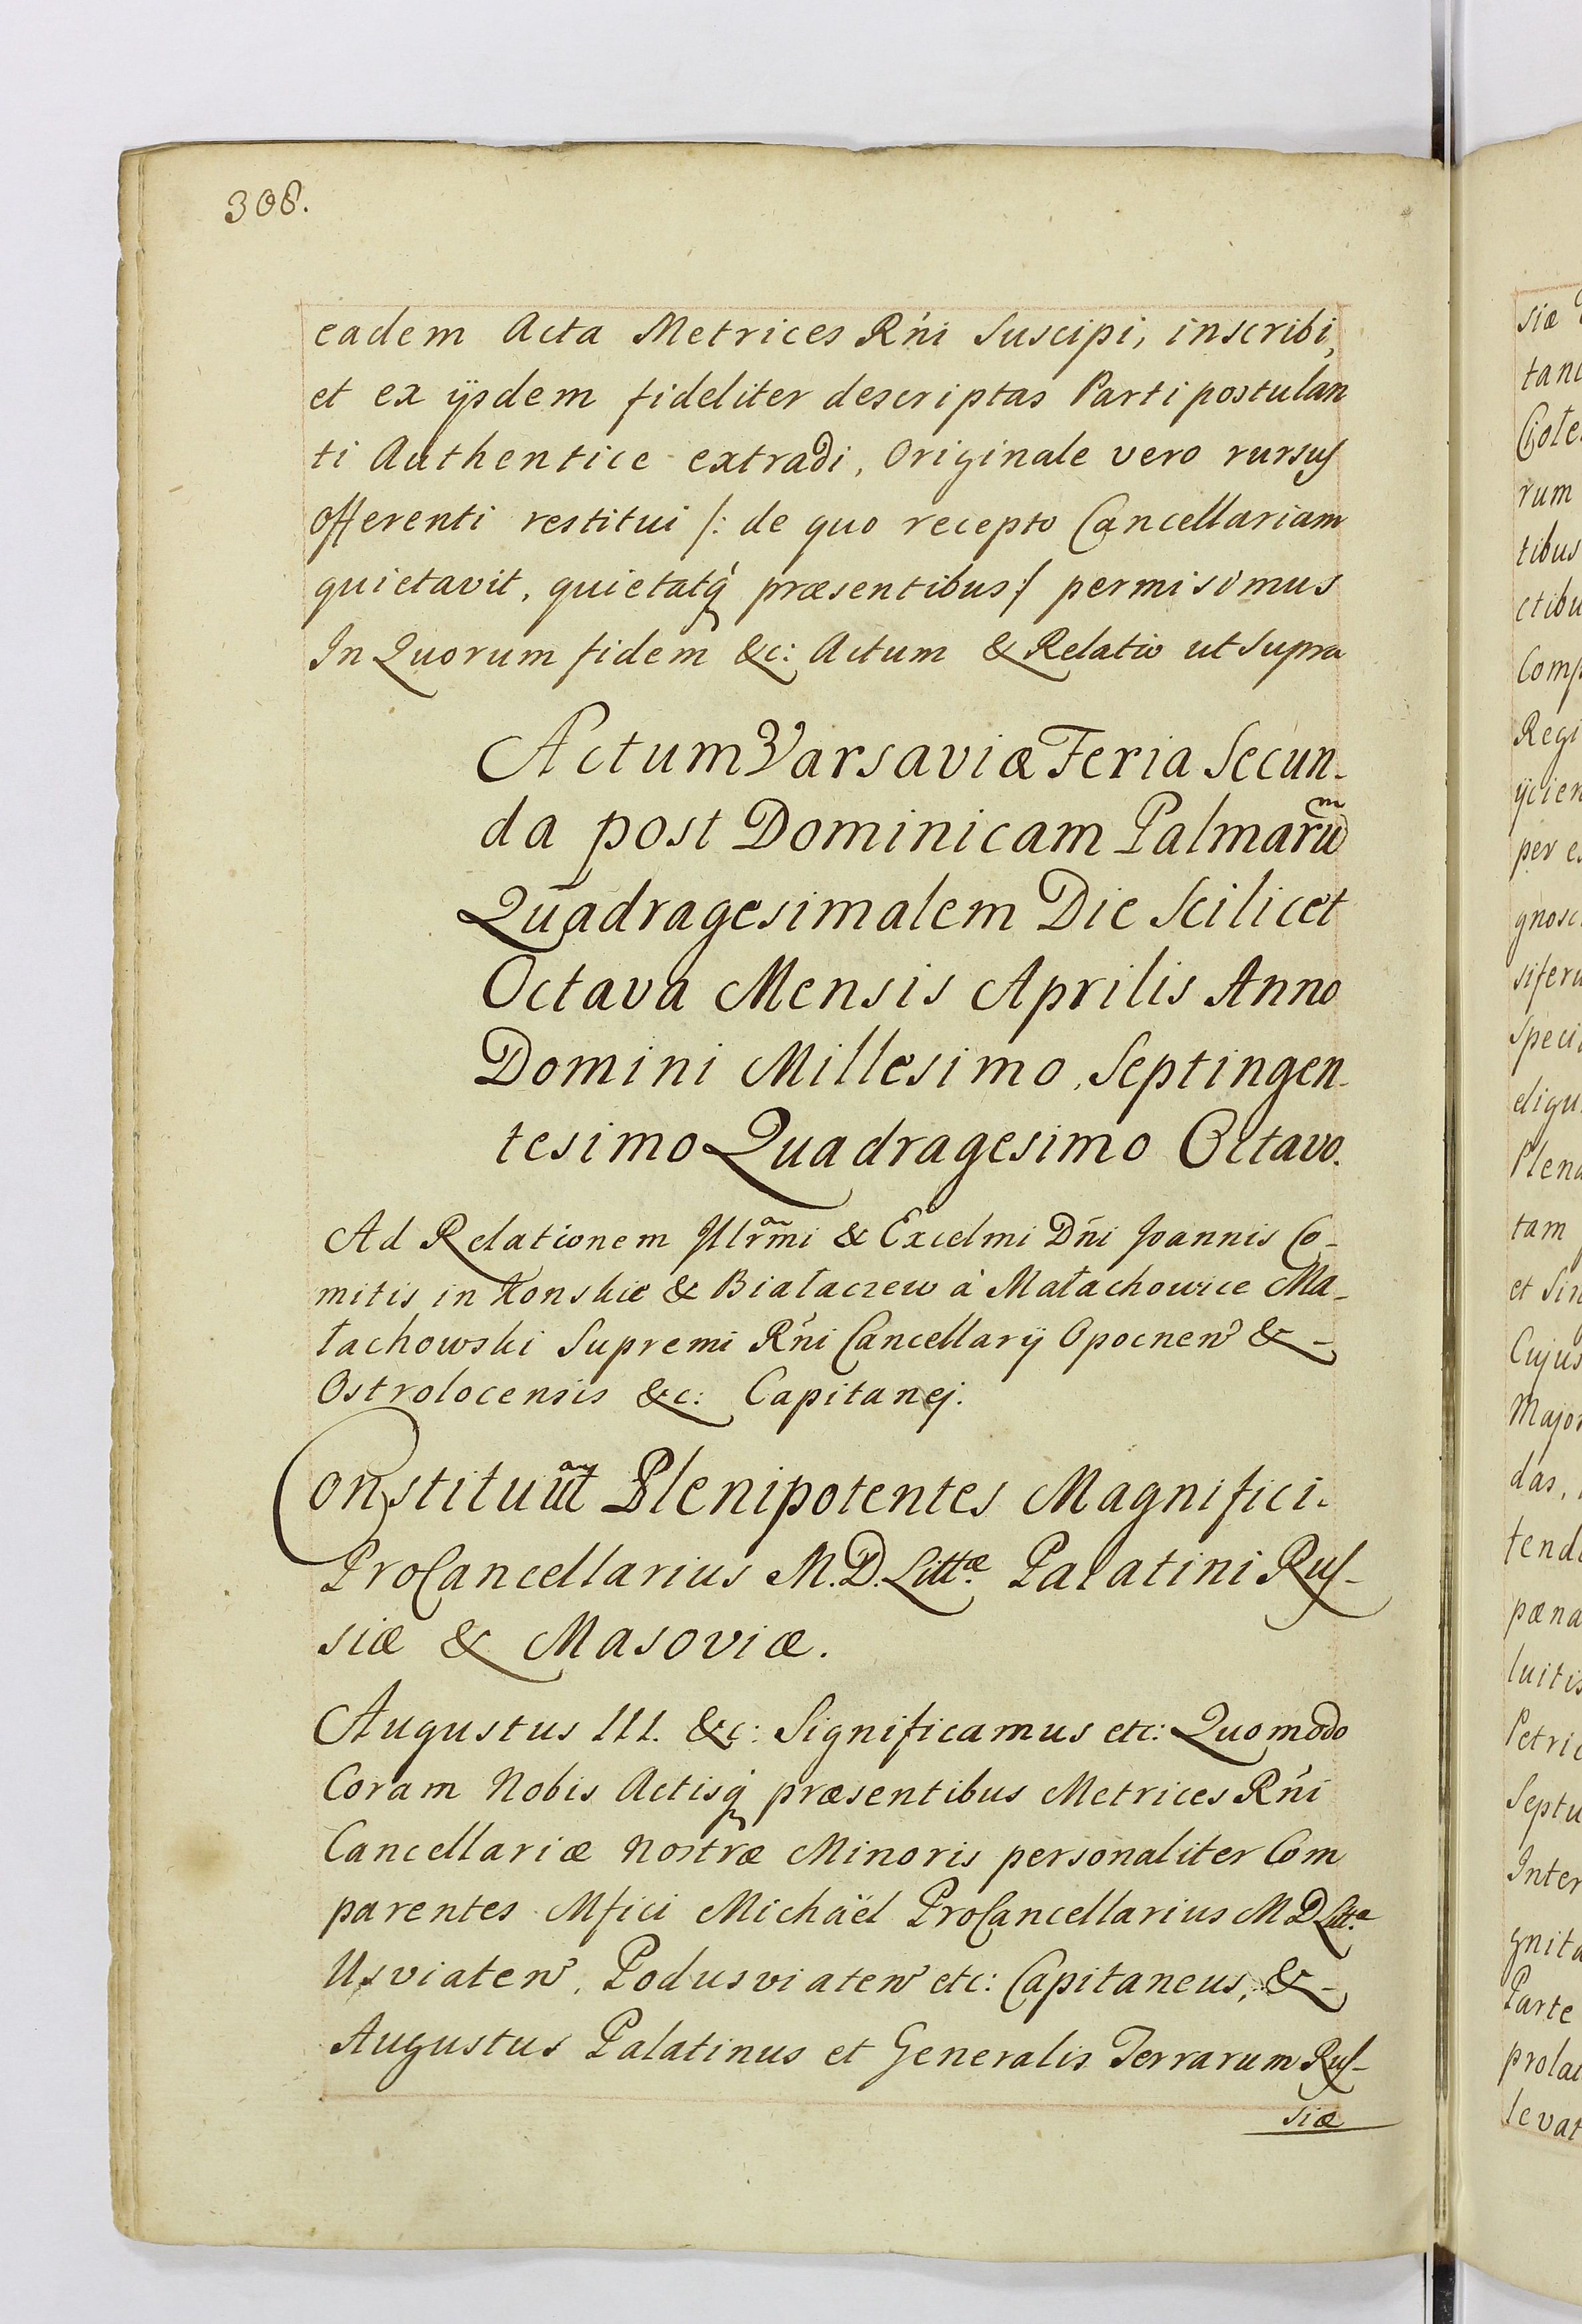 308.
eadem Acta Metrices Rñi Suscipi, inscribi,
et ex ijsdem fideliter descriptas Parti postulan
ti Authentice extradi, Originale vero rursus
offerenti restitui /: de quo recepto Cancellariam
quietavit, quietatq́ præsentibus :/ permisimus
In Quorum fidem &c: Actum & Relatio ut Supra
Actum Varsaviæ Feria Secun-
da post Dominicam Palmarū
Quadragesimalem Die Scilicet
Octava Mensis Aprilis Anno
Domini Millesimo Septingen-
tesimo Quadragesimo Octavo.
Ad Relationem Illr̃mi & Excelmi Dñi Joannis Co-
mitis in Konskie & Białaczew à Małachowice Ma-
łachowski Supremi Rñi Cancellarij Opocnen &-
Ostrolocensis &c: Capitanej.
Constituũt Plenipotentes Magnifici
ProCancellarius M. D. Littæ Palatini Rus-
siæ & Masoviæ.
Augustus III. &c: Significamus etc: Quomodo
Coram Nobis Actisq́ præsentibus Metrices Rñi
Cancellariæ Nostræ Minoris personaliter Com
parentes Mfici Michaël ProCancellarius M D Litt.æ
Usviaten, Podusviaten etc: Capitaneus, &-
Augustus Palatinus et Generalis Terrarum Rus-
siæ
siæ
rum
tibus
ctibu
Comp
Regi
per e
gnosc
Speci
eligu
Plena
tam
et Sin
Cujus
Major
das,
tend
pæna
luitis
Petri
Septu
Inter
gnita
Parte
prola
levat